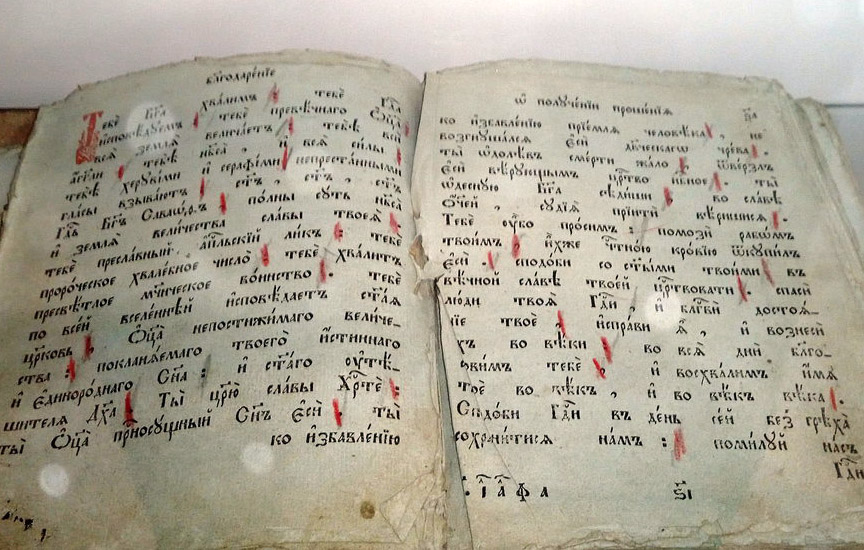 благодаре́нїе
Тебѐ Бг҃а хва́лимъ : тебѐ Гд҃а
и҆сповѣ́дуемъ , тебѐ превѣ́чнаго Ѻ҆ц҃а̀
всѧ̀ землѧ̀ велича́етъ , тебѣ̀ всѝ
а҆гг҃ли , тебѣ̀ нб҃са̀ , и҆ всѧ̀ си́лы ,
тебѣ̀ херѹві́ми и҆ серафі́ми непреста́нными
гла́сы взыва́ютъ , ст҃ъ , ст҃ъ , ст҃ъ
Гд҃ь Бг҃ъ Савао́ѳъ , по́лны сѹ́ть нб҃са̀
и҆ землѧ̀ вели́чества сла́вы твоеѧ̀ ,
тебѐ пресла́вный а҆пⷭ҇льскїй ли́къ : тебѐ
проро́ческое хвале́бное число̀ , тебѐ хва́литъ
пресвѣ́тлое мч҃ническое во́инство , тебѐ
по все́й вселе́ннѣй и҆сповѣ́даетъ ст҃а́ѧ
цр҃ковь , Ѻ҆ц҃а̀ непостижи́маго вели́че_
ства : покланѧ́емаго твоего̀ и҆́стиннаго
и҆ Е҆диноро́днаго Сн҃а : и҆ ст҃а́го ѹ҆тѣ_
ши́телѧ Дх҃а , Ты̀ цр҃ю̀ сла́вы Хрⷭ҇тѐ ,
ты̀ Ѻ҆ц҃а̀ присносѹ́щный Сн҃ъ Е҆сѝ , ты̀
ко и҆збавле́нїю
ѡ҆ полѹче́нїи проше́нїѧ
ко и҆збавле́нїю прїе́млѧ человѣ́ка , не
возгнѹша́лсѧ Е҆сѝ дв҃и́ческагѡ чре́ва ,
ты̀ ѡ҆долѣ́въ сме́рти жа́ло , ѿве́рзлъ
Е҆сѝ вѣ́рѹющымъ ца́рство нбⷭ҇ное , ты̀
ѡ҆деснѹ́ю Бг҃а сѣди́ши , во сла́вѣ
Ѻ҆́чей , сѹдїѧ̀ прїитѝ вѣ́ришисѧ ,
Тебѐ ѹ҆̀бо про́симъ : помозѝ рабѡ́мъ
твои̑мъ , и҆̀хже чт҃но́ю кро́вїю и҆скѹпи́лъ
Е҆сѝ , сподо́би со ст҃ы́ми твои́ми въ
вѣ́чной сла́вѣ твое́й црⷭ҇твовати , спасѝ
лю́ди твоѧ̑ Гдⷭ҇и , и҆ благⷭ҇вѝ достоѧ́_
нїе твоѐ , и҆спра́ви ѧ҆̀ , и҆ вознесѝ
ѧ҆̀хъ во вѣ́ки , во всѧ̑ дни̑ благо_
слови́мъ тебѐ , и҆ восхва́лимъ и҆́мѧ
твоѐ во вѣ́къ , и҆ во вѣ́къ вѣ́ка ,
Сподо́би Гдⷭ҇и въ де́нь се́й без̾ грѣха̀
сохрани́тисѧ на́мъ : поми́лѹй на́съ
Гдⷭ҇и